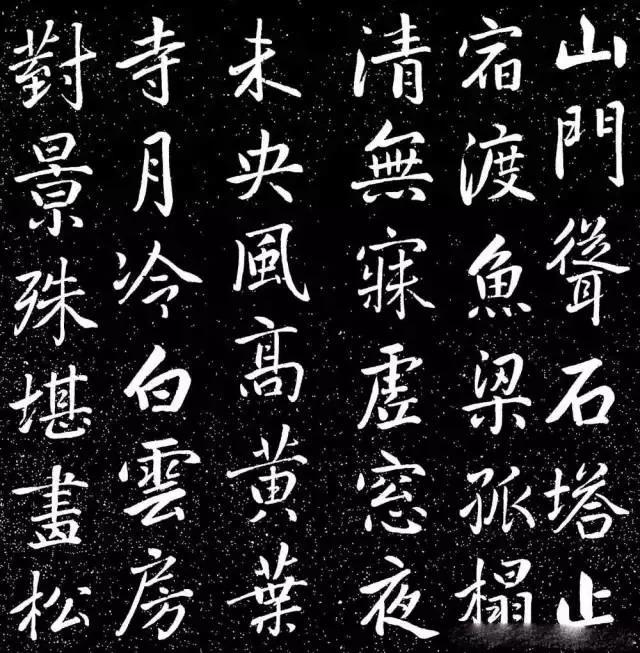 山門聳石塔止
宿渡魚梁孤榻
清無寐虛窓夜
未央風髙黄葉
寺月冷白雲房
對景殊堪畫松